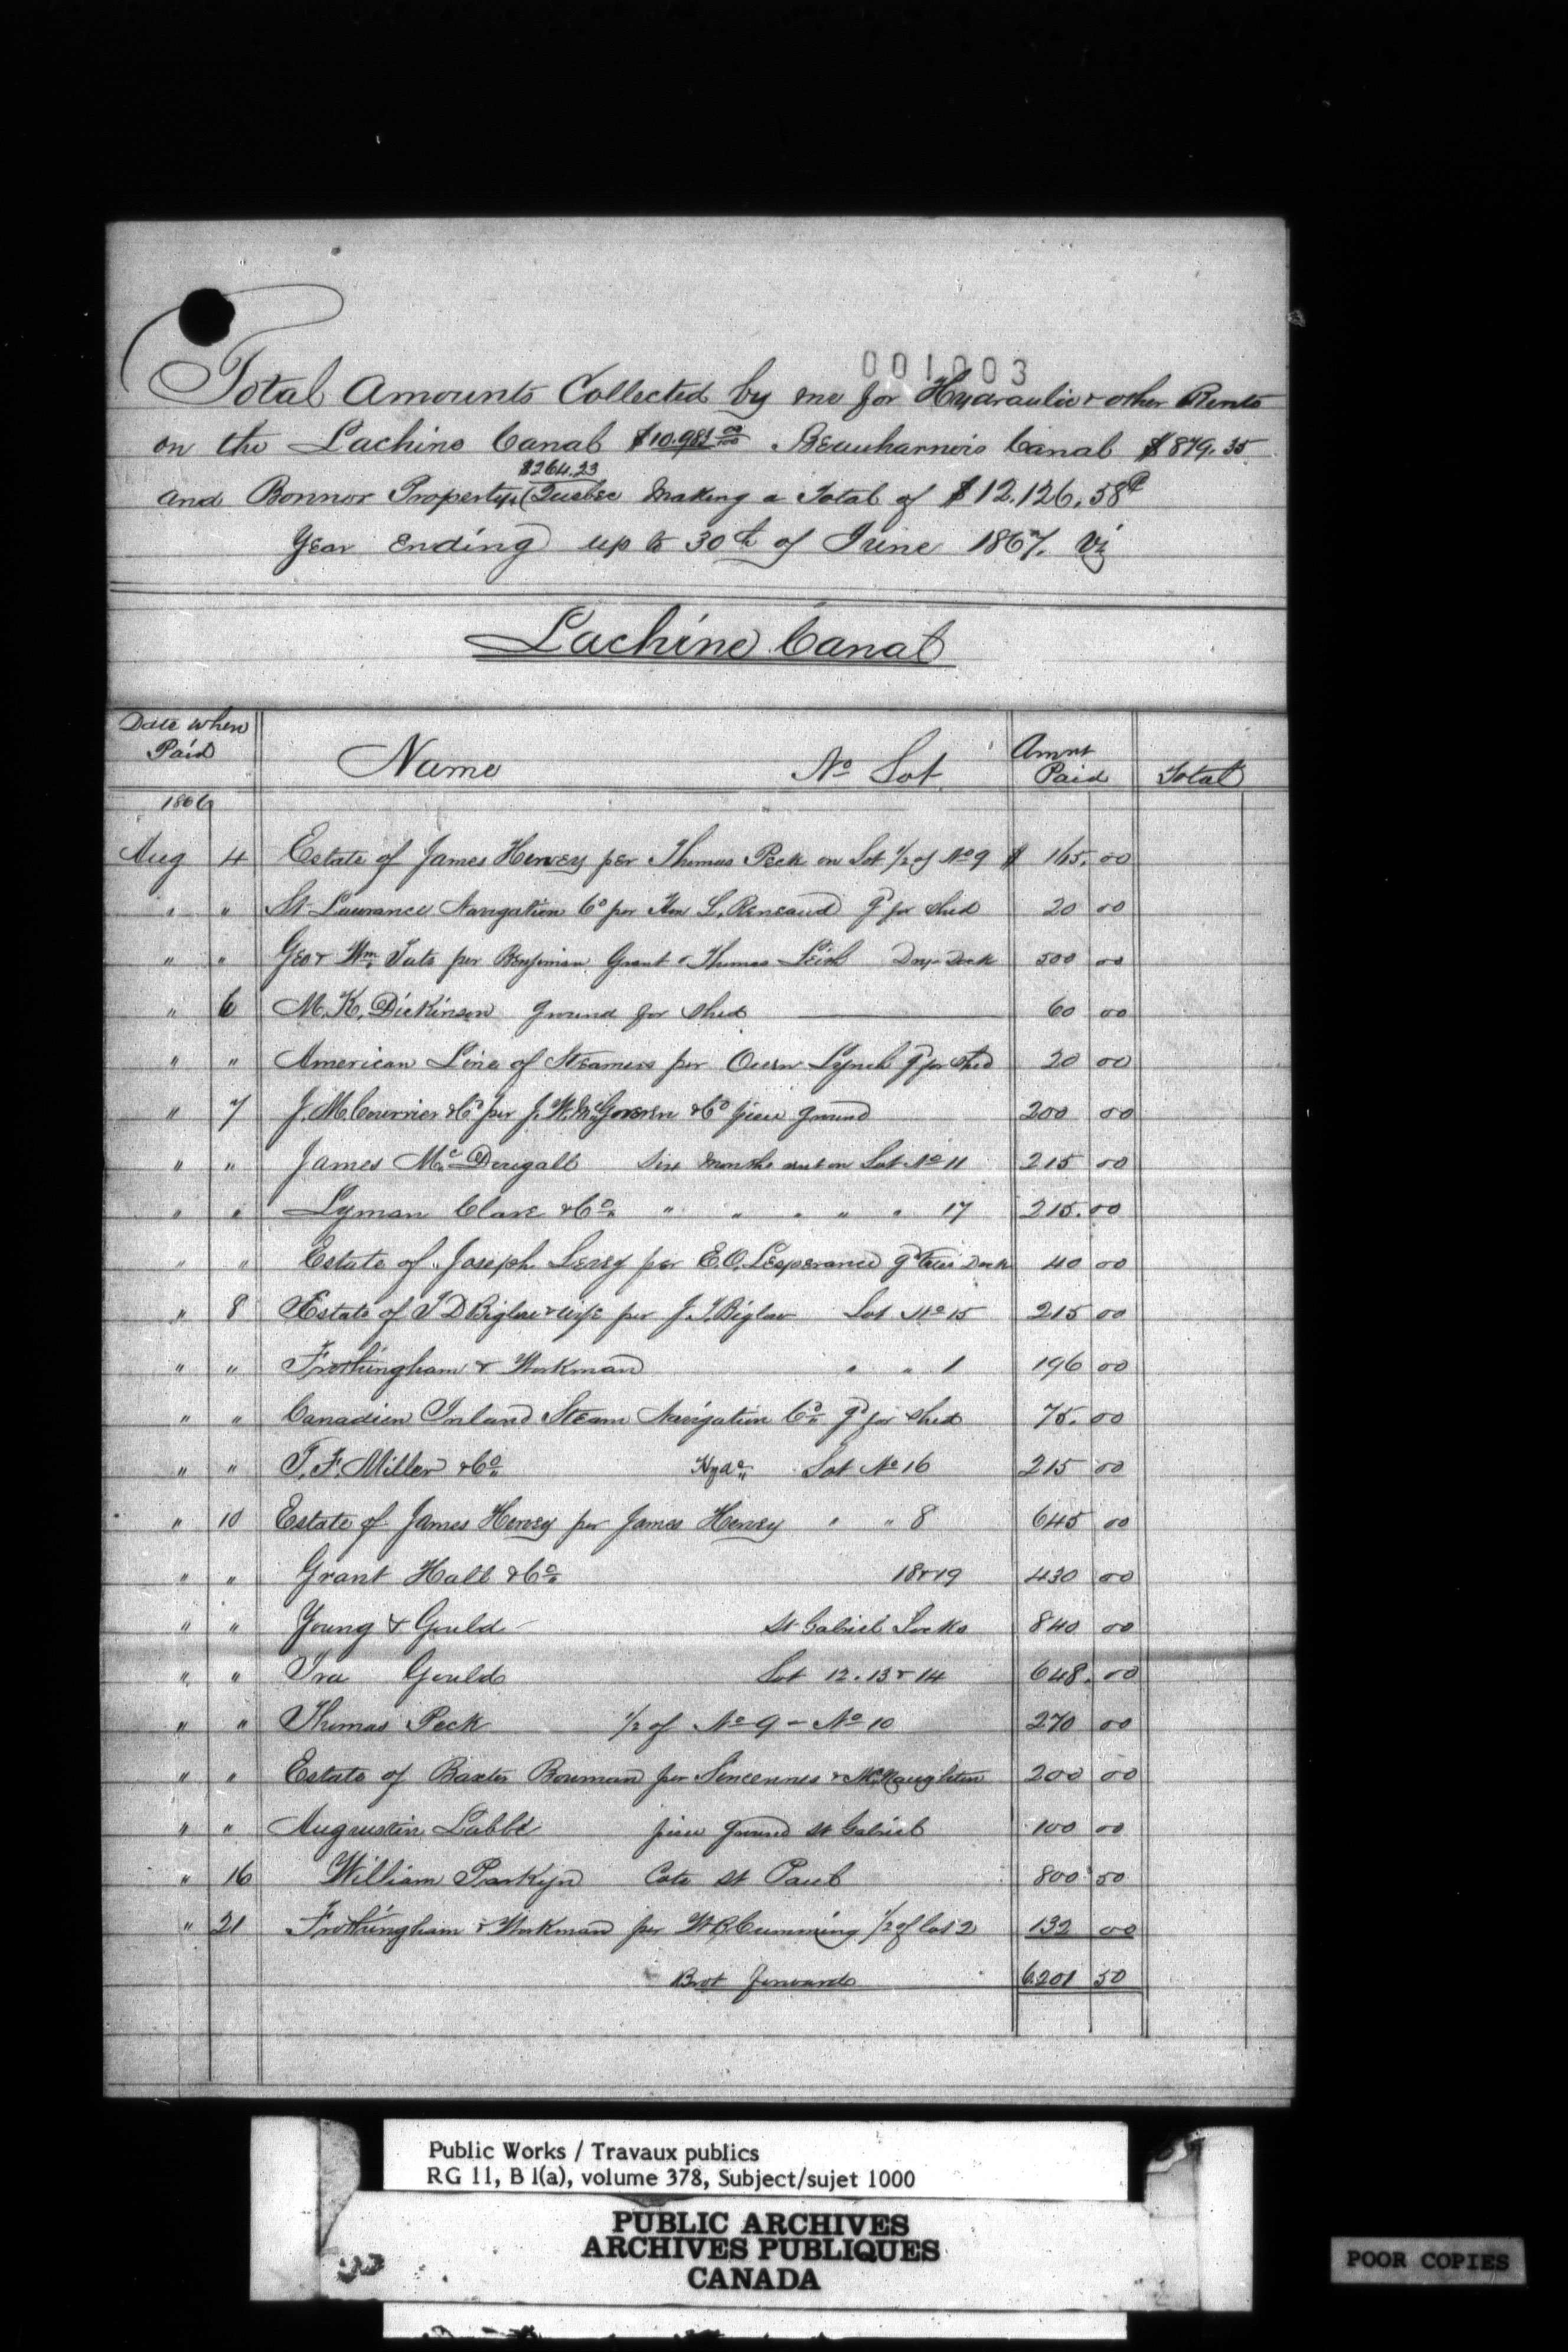 001003
Total Amounts Collected by me for Hydraulic & other Rents
on the Lachine Canal $10.983 00/100 Beauharnois Canal $879.35
$264.23
and Bonner Property (Quebec Making a Total of $12.126.58
Year Ending up to 30th of June 1867. Viz
Lachine Canal
Date when Paid Name No Lot Amnt Paid Total
1866
Aug 4 Estate of James Hervey per Thomas Peck on Lot 1/2 of No 9 $ 165.00
" " St Lawrance Navigation Co per Hon L. Reneaud gd for Shed 20 00
" " Geo & Wm Tate per Benjimin Grant & Thomas Leish Dry Dock 500 00
" 6 M. K. Dickinson ground for Shed 60 00
" " American Line of Steamers per Owen Lynch gd for Shed 20 00
" 7 J. M. Courrier & Co per J. W. McGovern & Co piece ground 200 00
" " James Mc Dougall Six Months rent on Lot No 11 215 00
" " Lyman Clare & Co " " " " " 17 215.00
" " Estate of Joseph per E. O. Lesperance gd Tates Dock 40 00
" 8 Estate of J D Biglow & wife per J. J. Biglow Lot No 15 215 00
" " Frothingham & Workman " " 1 196 00
" " Canadien Inland Steam Navigation Co gd for Shed 75.00
" " T. F. Miller & Co Hydc Lot No 16 215 00
" 10 Estate of James Hervey per James Hervey " " 8 645 00
" " Grant Hall & Co 18 & 19 430 00
" " Young & Gould St Gabriel Locks 840 00
" " Ira Gould Lot 12.13 & 14 648.00
" " Thomas Peck 1/2 of No 9 - No 10 270 00
" " Estate of Baxter Bowman per Sincennes & McNaughton 200 00
" " Augustin Labbé piece ground St Gabriel 100 00
" 16 William Parkyn Cote St Paul 800 50
" 21 Frothingham & Workman per W B Cumming 1/2 of lot 2 132 00
Brot forward 6201 50
Public Works / Travaux publics
RG 11, B 1(a), volume 378, Subject/sujet 1000
PUBLIC ARCHIVES
ARCHIVES PUBLIQUES
CANADA
POOR COPIES